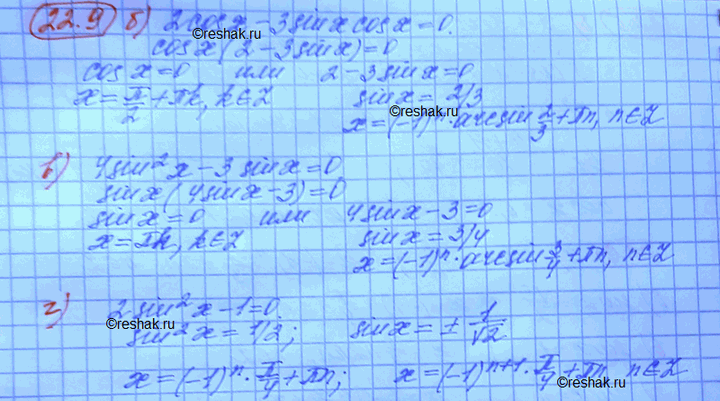 22.9 б) 2cosx - 3sinx cosx = 0.
©reshak.ru
cosx(2 - 3sinx) = 0
cosx = 0 или 2 - 3sinx = 0
x = π/2 + πk, k∈Z sinx = 2/3
©reshak.ru
x = (-1)ⁿ · arcsin 2/3 + πn, n∈Z
в) 4sin²x - 3sinx = 0
sinx(4sinx - 3) = 0
sinx = 0 или 4sinx - 3 = 0
x = πk, k∈Z sinx = 3/4
x = (-1)ⁿ · arcsin 3/4 + πn, n∈Z
г) 2sin²x - 1 = 0
©reshak.ru
sin²x = 1/2; sinx = ± 1/√2
x = (-1)ⁿ · π/4 + πn; x = (-1)ⁿ⁺¹ · π/4 + πn, n∈Z
©reshak.ru